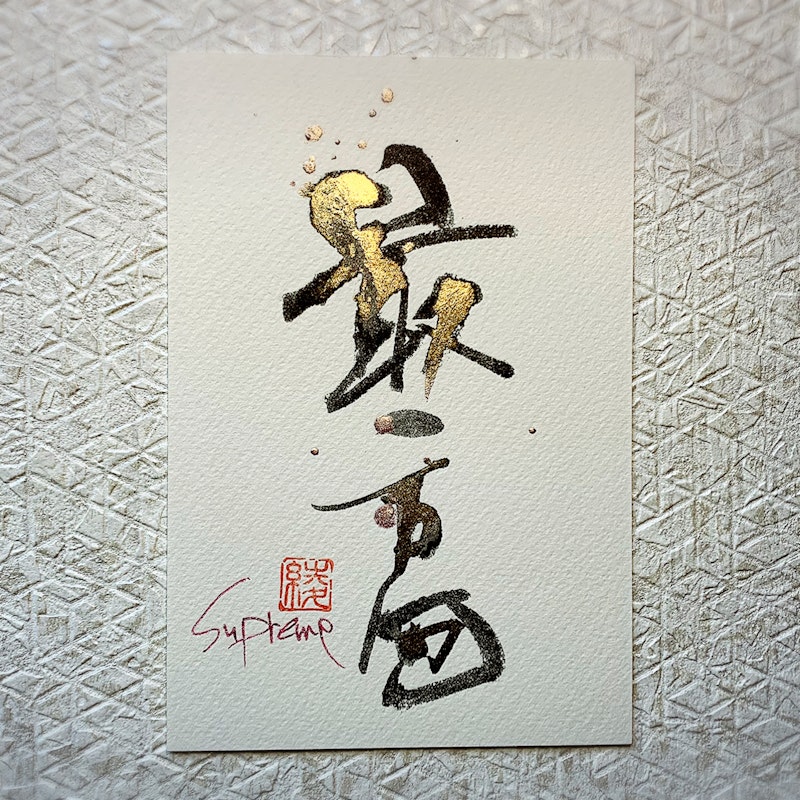 最高
綾
Supreme